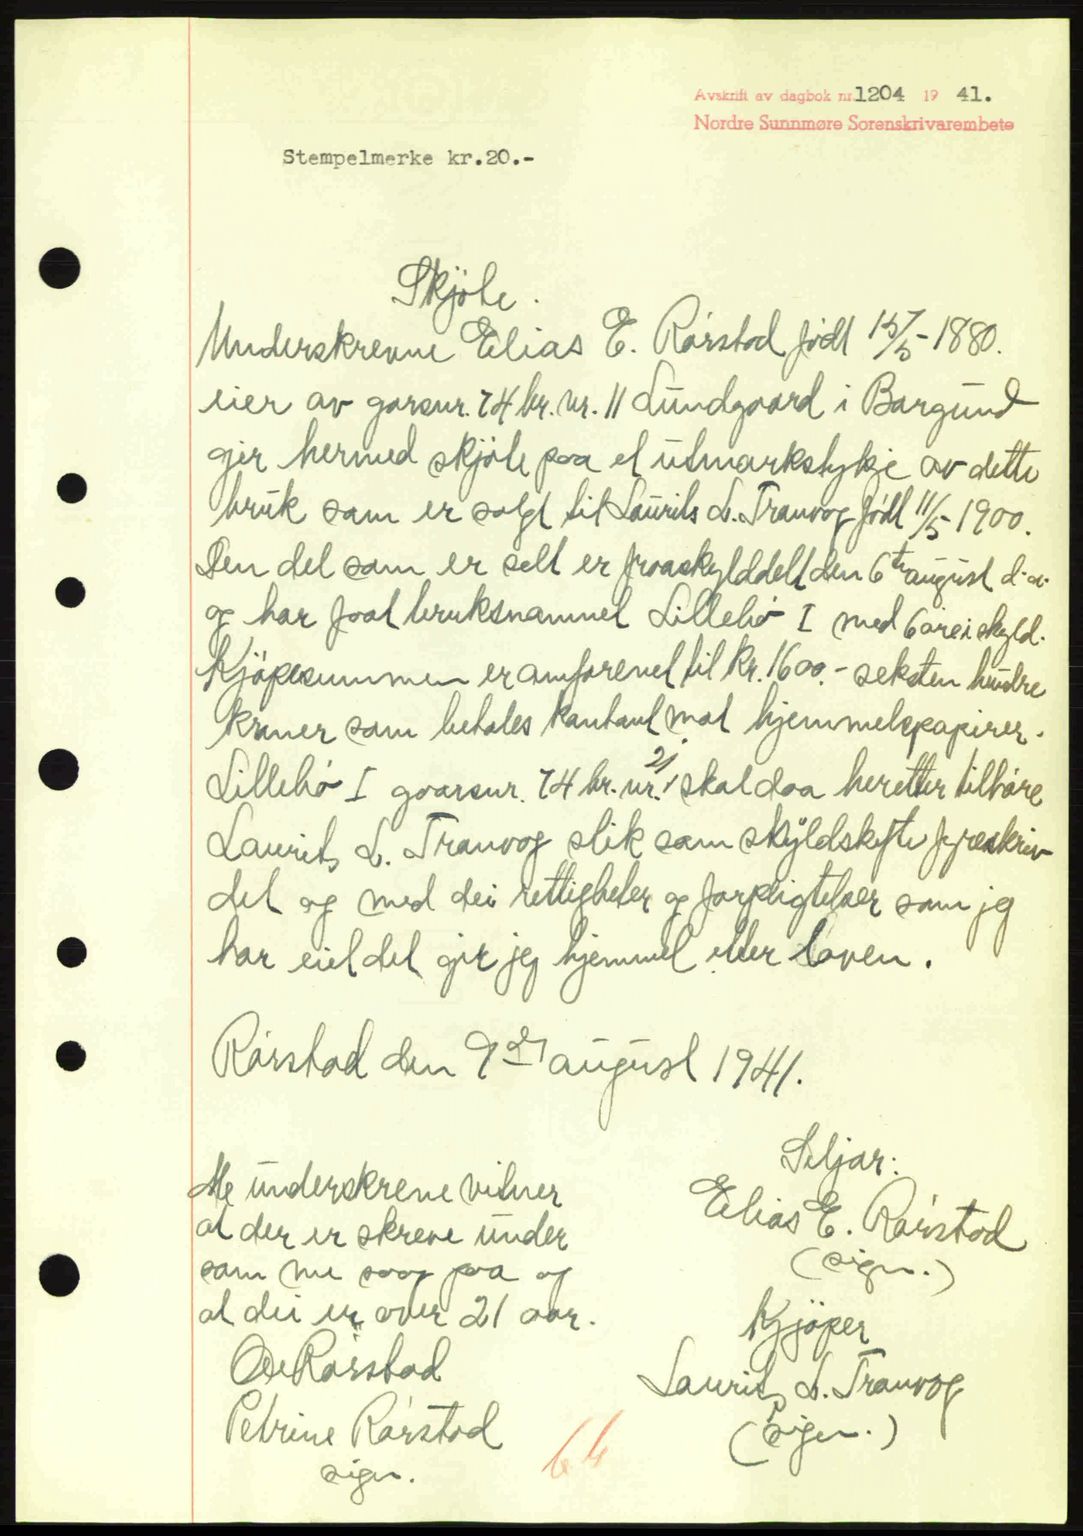 Avskrift av dagbok nr. 1204 19 41.
Nordre Sunnmøre Sorenskrivarembete
Stempelmerke kr.20.-
Skjöte.
Underskrevne Elias E. Rørstad født 15/5-1880.
eier av garsnr. 74 br. nr. 11 Lundgaard i Borgund
gir hermed skjöte paa et utmarkstykje av dette
bruk som er solgt til Laurits L. Tranvog født 11/5-1900.
Den del som er selt er fraaskylddelt den 6te august d.a.
og har faat bruksnamnet Lillebø I med 6 øre i skyld.
Kjöpesummen er omforenet til kr. 1600.- seksten hundre
kroner som betales kontant mot hjemmelspapirer.
Lillebø I gaarsnr. 74 br. nr. 21, skal daa heretter tilhøre
Laurits L. Tranvog slik som skyldskifte
det og med dei rettigheter og forpligtelser som jeg
har eiet det gir jeg hjemmel etter loven.
Rørstad den 9de august 1941.
Me underskrene vitner
at der er skreve under
som me saag paa og
at dei er over 21 aar.
Ole Rørstad
Petrine Rørstad
sign.
Seljar:
Elias E. Rørstad
(sign.)
Kjöper
Laurits L. Tranvog
(sign.)